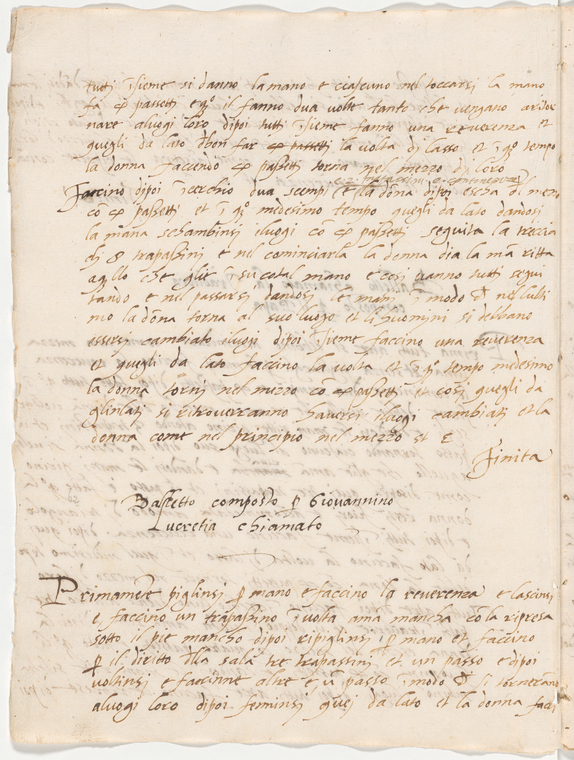 tutti īsieme si danno la mano e ciascuno nel toccarsi la mano
fa 4 passetti e q.o il fanno dua volte tanto che vengano a ritor
nare aluogi loro dipoi tutti īsieme fanno una reverenza et
quegli da lato dbon far la volta di lasso et ī q.o tempo
la donna faccendo 4 passetti torna nel mezo di loro
Faccino dipoi īcerchio dua scempi e la dōna dipoi escha di mezo
cō 4 passetti et ī q.o medesimo tempo quegli da lato dandosi
la mana schambinsi iluogi cō 4 passetti seguita la treccia
di 8 trapassini e nel cominciarla la donna dia la mā ritta
aqllo che glie ī su cotal mano e cosi vanno tutti segui
tando e nel passarsi dandosi e mani ī modo nellulti
mo la dōna torna al suo luogo et li huomini si debbano
essersi cambiato iluogi dipoi īsieme faccino una reverenza
et quegli da lato faccino la volta et ī q.o tempo medesimo
la donna torni nel mezo cō 4 passetti et cosi quegli da
glinlati si ritroverranno havere iluogi cambiati et la
donna come nel principio nel mezo
Finita
Balletto composto p Giovannino
Lucretia chiamato
Primamēte piglinsi p mano e faccino la reverenza e lascinsi
e faccino un trapassino ī volta ama mancha cōla ripresa
sotto il pie mancho dipoi ripiglinsi p mano et faccino
p il diritto dlla sala tre trapassini et un passo e dipoi
voltinsi e faccinne altre e ū passo ī modo si torneranno
aluogi loro dipoi ferminsi quej da lato et la donna facci